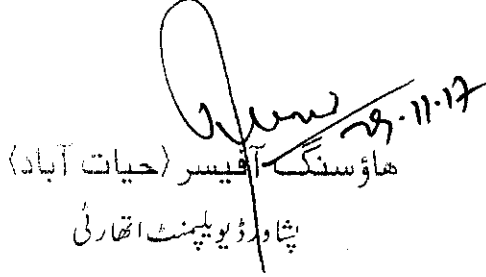 29.11.17
ھاؤسنگ آفیسر (حیات آباد)
پشاور ڈیویلپمنٹ اتھارٹی